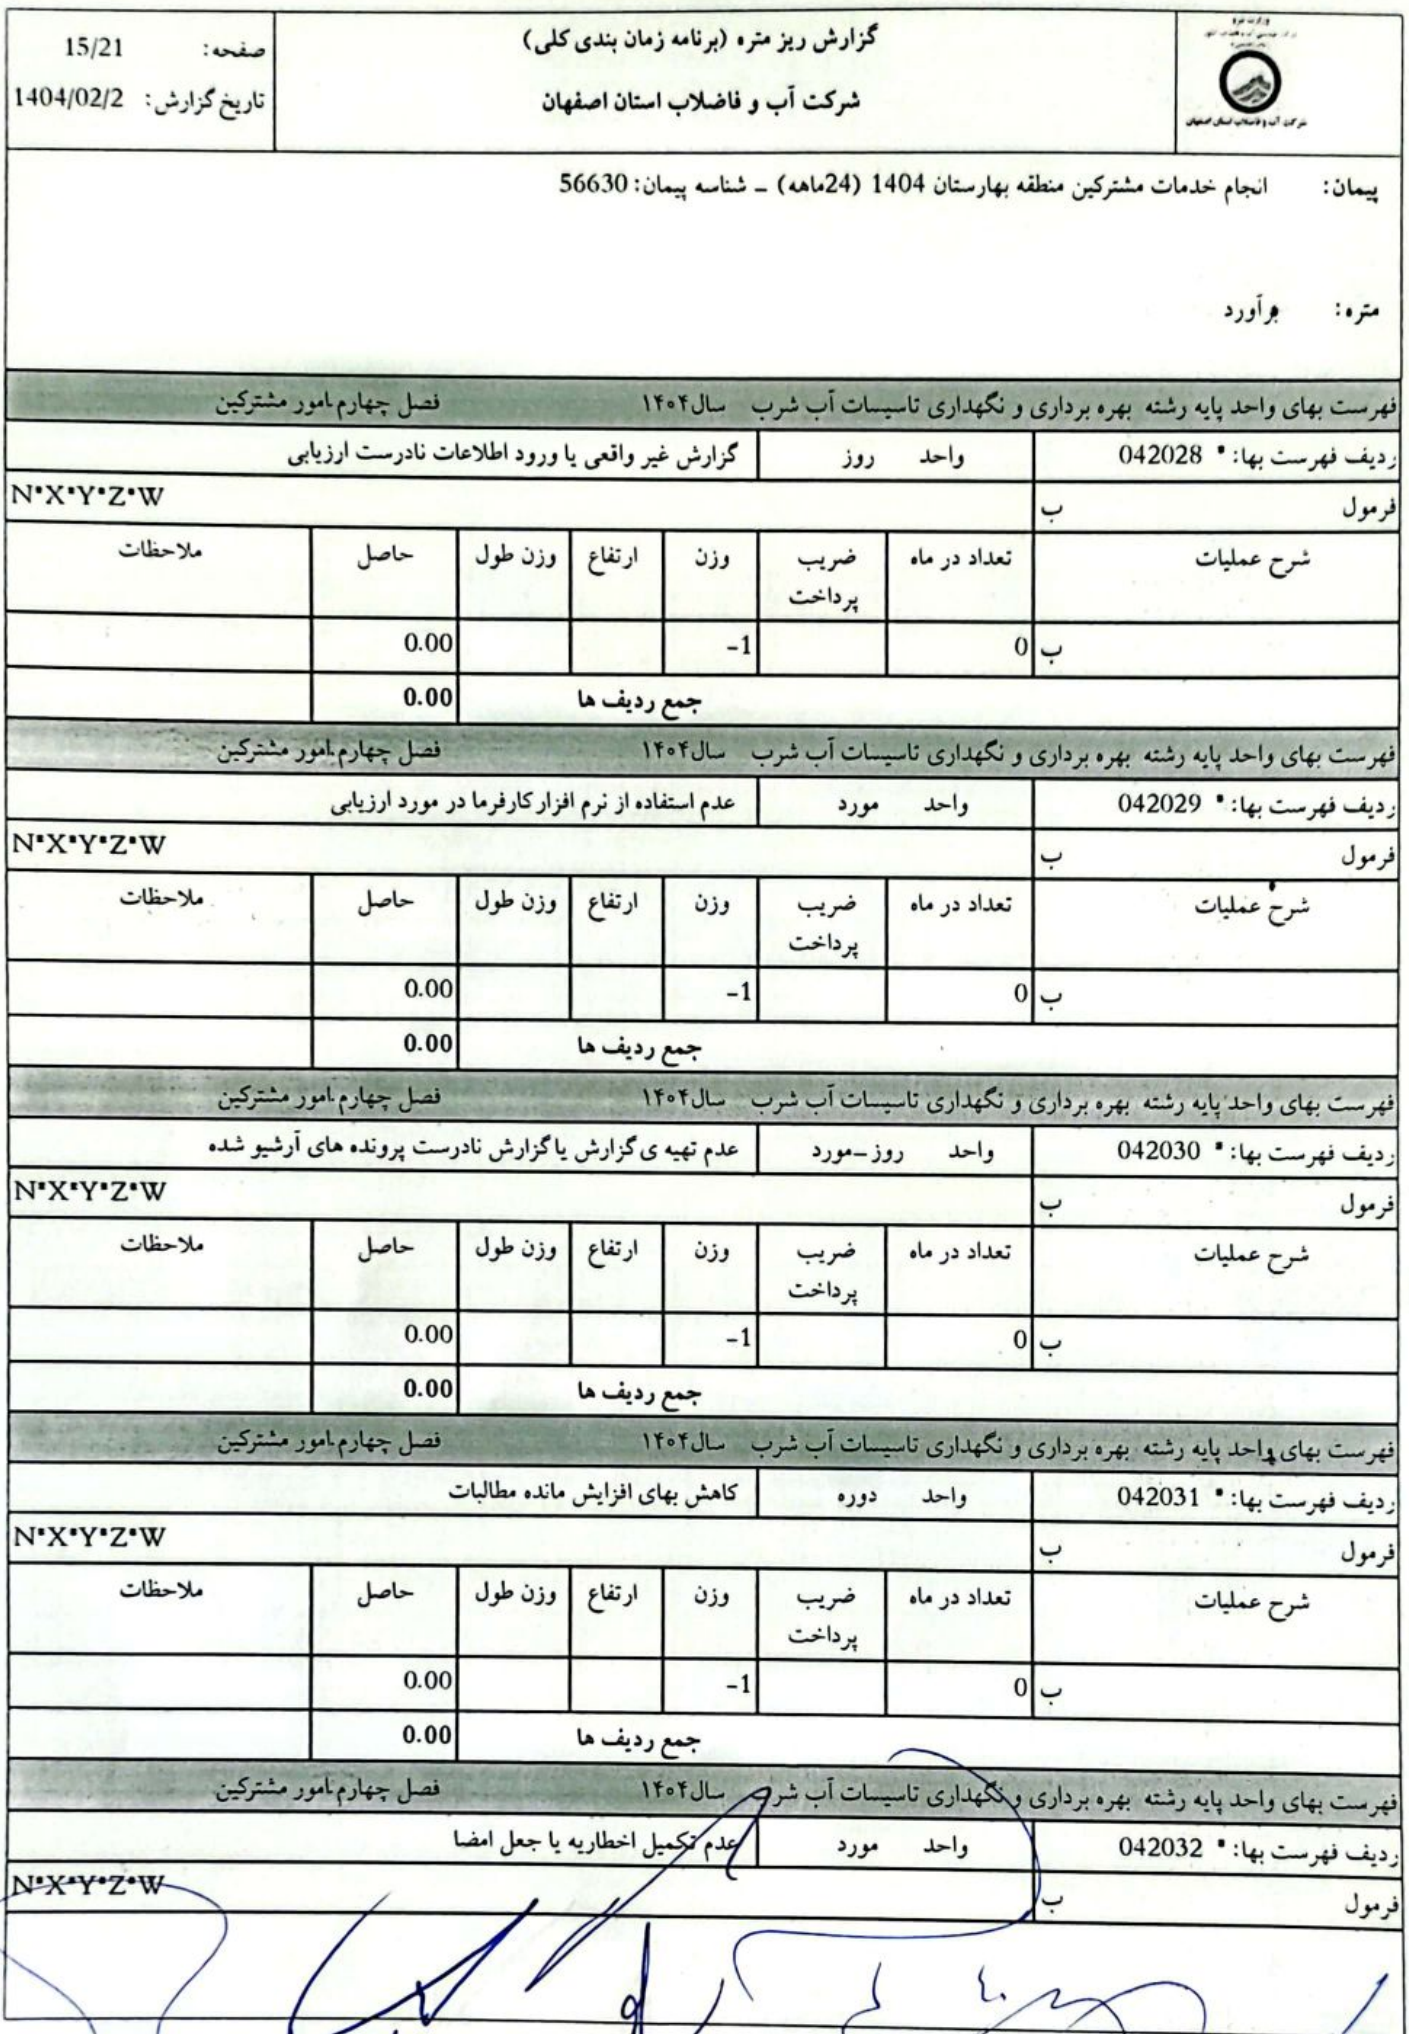 گزارش ریز متره (برنامه زمان بندی کلی)
شرکت آب و فاضلاب استان اصفهان
صفحه: 15/21
تاریخ گزارش: 1404/02/2
وزارت نیرو
شرکت آب و فاضلاب استان اصفهان
پیمان: انجام خدمات مشترکین منطقه بهارستان 1404 (24ماهه) ـ شناسه پیمان: 56630
متره: برآورد
فهرست بهای واحد پایه رشته بهره برداری و نگهداری تاسیسات آب شرب سال۱۴۰۴ فصل چهارم.امور مشترکین
ردیف فهرست بها: * 042028 واحد روز گزارش غیر واقعی یا ورود اطلاعات نادرست ارزیابی
فرمول ب N*X*Y*Z*W
شرح عملیات تعداد در ماه ضریب پرداخت وزن ارتفاع وزن طول حاصل ملاحظات
ب 0 -1 0.00
جمع ردیف ها 0.00
فهرست بهای واحد پایه رشته بهره برداری و نگهداری تاسیسات آب شرب سال۱۴۰۴ فصل چهارم.امور مشترکین
ردیف فهرست بها: * 042029 واحد مورد عدم استفاده از نرم افزار کارفرما در مورد ارزیابی
فرمول ب N*X*Y*Z*W
شرح عملیات تعداد در ماه ضریب پرداخت وزن ارتفاع وزن طول حاصل ملاحظات
ب 0 -1 0.00
جمع ردیف ها 0.00
فهرست بهای واحد پایه رشته بهره برداری و نگهداری تاسیسات آب شرب سال۱۴۰۴ فصل چهارم.امور مشترکین
ردیف فهرست بها: * 042030 واحد روز-مورد عدم تهیه ی گزارش یا گزارش نادرست پرونده های آرشیو شده
فرمول ب N*X*Y*Z*W
شرح عملیات تعداد در ماه ضریب پرداخت وزن ارتفاع وزن طول حاصل ملاحظات
ب 0 -1 0.00
جمع ردیف ها 0.00
فهرست بهای واحد پایه رشته بهره برداری و نگهداری تاسیسات آب شرب سال۱۴۰۴ فصل چهارم.امور مشترکین
ردیف فهرست بها: * 042031 واحد دوره کاهش بهای افزایش مانده مطالبات
فرمول ب N*X*Y*Z*W
شرح عملیات تعداد در ماه ضریب پرداخت وزن ارتفاع وزن طول حاصل ملاحظات
ب 0 -1 0.00
جمع ردیف ها 0.00
فهرست بهای واحد پایه رشته بهره برداری و نگهداری تاسیسات آب شرب سال۱۴۰۴ فصل چهارم.امور مشترکین
ردیف فهرست بها: * 042032 واحد مورد عدم تکمیل اخطاریه یا جعل امضا
فرمول ب N*X*Y*Z*W